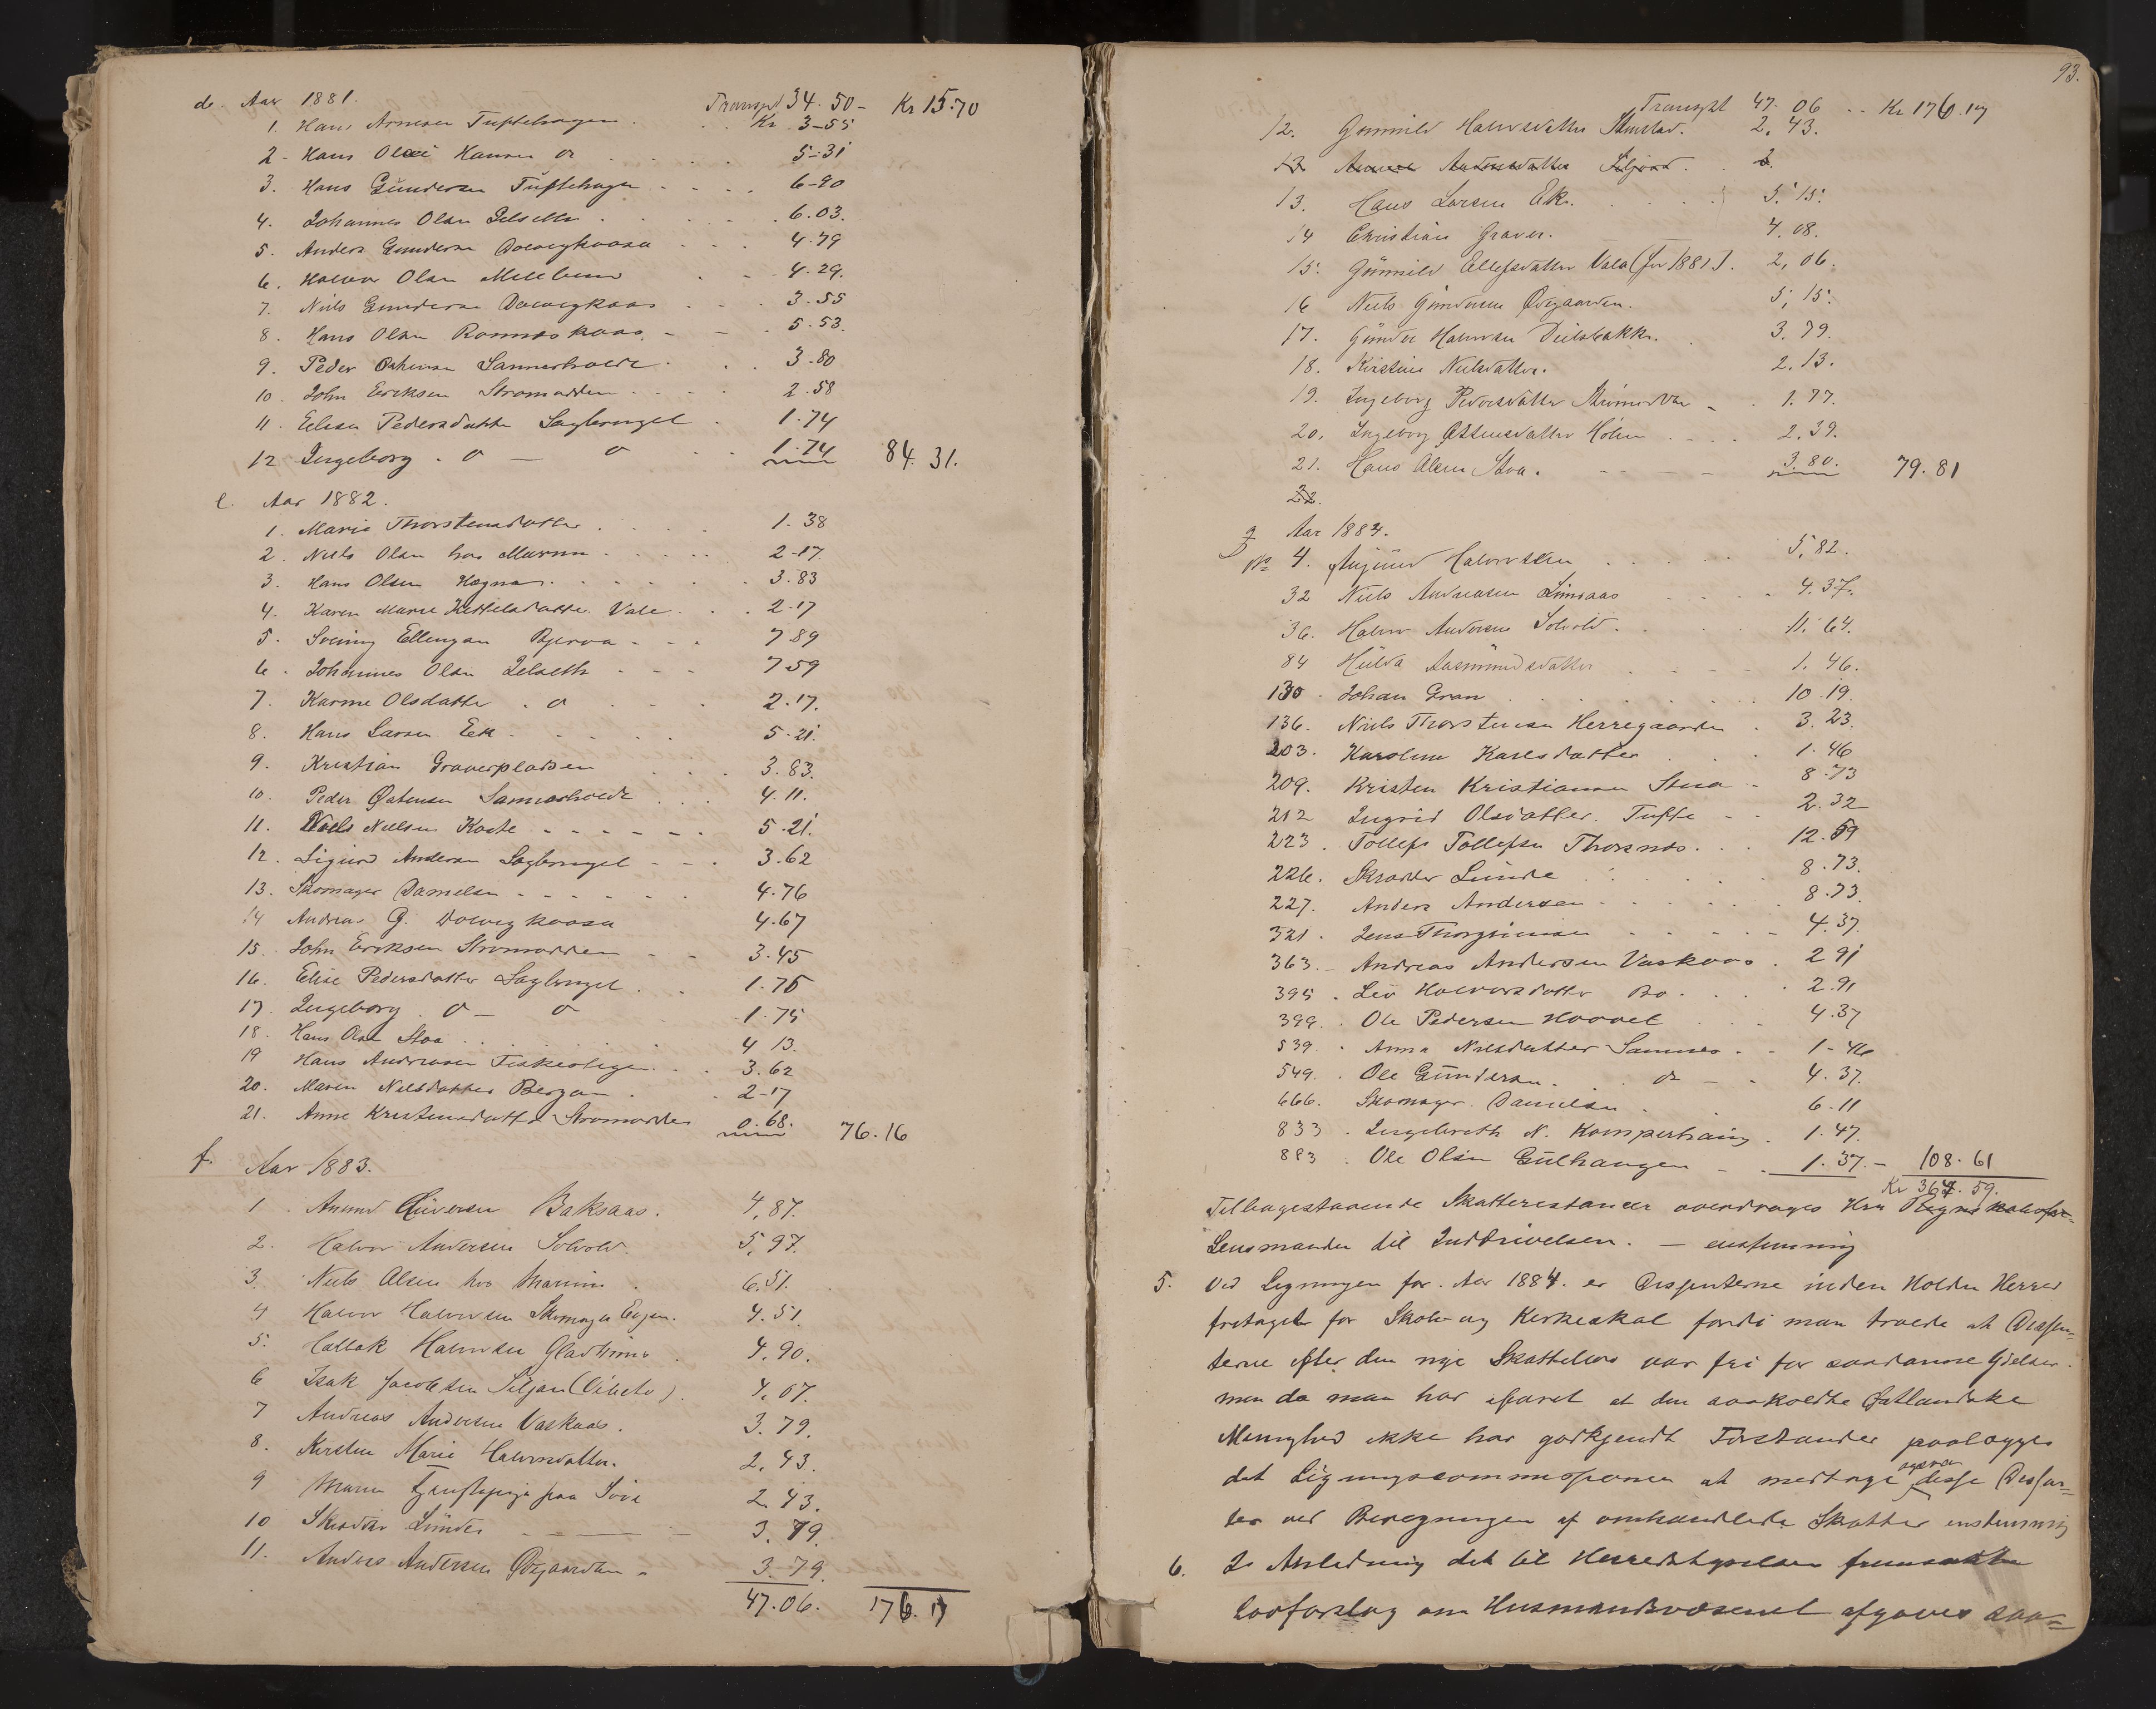 d. Aar 1881. Transpt 34.50 - Kr 15.70
1. Hans Arnesen Tuftehagen . . . Kr. 3-55
2 - Hans Olsen Hansen do . . . . 5-31
3. Hans Gundersen Tuftehagen . . . . 6-90
4. Johannes Olsen Jelseth . . . . 6.03.
5. Anders Gundersen Dolvegkaasa . . . 4.79
6. Halvor Olsen Mellum . - 4.29.
7. Niels Gundersen Dolvegkaas . . . 3.55
8. Hans Olsen Romnæskaas. - - . 5.53.
9. Peder Østensen Sannerholdt . . . 3.80
10. John Eriksen Stromodden . . . . 2.58
11. Elise Pedersdatter Sagbrugel . 1.74
12 Ingeborg . do — do . . 1.74 84.31.
e. Aar 1882.
1. Marie Thorstensdatter . . . . 1.38
2. Niels Olsen hos Munum . . . . . 2-17.
3. Hans Olsen Hogna . . . . . . 3.83
4. Karen Marie Kittelsdatter Vale . . . 2-17
5. Svening Ellingsen Bjerva - - - 7 89
6. Johannes Olsen Jelseth - - - 7 59
7. Karine Olsdatter . do . . . 2.17.
8. Hans Larsen Eek . . . . . 5.21.
9. Kristian Graverpladsen . . . 3.83.
10. Peder Østensen Sannerholdt . . . 4.11.
11. Niels Nielsen Kaste - - - - - - . 5.21.
12. Sigurd Andersen Sagbrugel - - . 3.62
13. Skomager Danielsen - - - - - - 4.76
14 Andreas G. Dolvegkaasa 4.67
15. John Eriksen Stromodden - - 3.45
16. Elise Pedersdatter Sagbrugel . . 1.75
17. Ingeborg . do — do - 1.75
18. Hans Olsen Stoa . . . . 4 13.
19 Hans Andreasen Fiskeolgen . . . 3.62
20. Maren Nilsdatter Bergan . . 2-17
21. Anne Kristensdatter Stromodden 0.68. 76.16
f. Aar 1883.
1. Amund Siversen Baksaas. 4,87.
2. Halvor Andersen Solvold. 5,97.
3. Niels Olsen hos Manum . 6.51.
4 Halvor Halvorsen Skomager Eegen. 4.51.
5. Hallak Halvorsen Gladhime . 4.90.
6 Isak Jacobsen Siljan 4.07.
7 Andreas Andersen Vaskaas. 3.79.
8. Kirstine Marie Halvorsdatter. 2,43.
9 Maren paa Sóve 2.43.
10 Skrædder Lunde - — — - 3.79.
11. Anders Andersen Øvrgaarden - 3.79.
47.06. 176.17
93.
Transpt 47.06 - - Kr 176.17
12. Gunnild Halvorsdatter Stenstad. 2,43.
13 Siljan . 2.
13. Hans Larsen Ek. . . . . 5.15.
14 Christian Graver. — — 4.08.
15. Gunnild Ellefsdatter Vala (for 1881). 2,06.
16 Niels Gundersen Øvrgaarden. 5,15.
17. Gunder Halvorsen Dielsbakke. . 3.79.
18. Kirstine Nielsdatter. 2.13.
19. Ingeborg Pedersdatter - . 1.77.
20. Ingeborg Ostensdatter Holm . . . . 2,39.
21. Hans Olsen Stoa. - - - — — 3.80. 79.81
22.
g Aar 1884.
No 4. Halvorsen . . . . . 5,82.
32 Niels Andreasen Limsaas . . . . 4.37.
36. Halvor Andersen Solvold . . . 11.64.
84 Hilda Aasmundsdatter . . - - 1.46.
130 Johan Gran . . . . . . 10.19.
136. Niels Thorstensen Herregaarden . 3.23.
203. Karoline Karlsdatter . . 1.46
209. Kristen Kristiansen Stua - 8.73
212 Ingrid Olsdatter. Tufte - - 2.32
223. Tollefs Tollefsen Thorsnæs . . . 12.59
226. Skrædder Lunde . . . . . 8.73.
227. Anders Andersen - . . . . . 8.73.
321. Jens Thorgrimsen - - - - - - 4.37.
363. - Andreas Andersen Vaskaas . 2 91
395. Liv Halvorsdatter Bo . . . . 2.91
399. . Ole Pedersen Hoovet . . - 4.37
539. . Anna Nilsdatter Sannes . - 1-46
549. . Ole Gundersen . . do - - 4.37.
666. Skomager Danielsen . . 6.11
833 . Ingebreth N. Komperhaug . 1.47.
883 . Ole Olsen Gulhaugen - . 1.37. - 108.61
Kr 364.59.
Tilbagestaaende Skatterestancer overdrages Hrn Regnskabsfor-
Lensmanden til Inddrivelsen. — enstemmig
5. Ved Ligningen for Aar 1884. er Dissenterne inden Holden Herred
fritaget for Skole- og Kirkeskat fordi man troede at Dissen-
terne efter den nye Skattelov var fri for saadanne Ydelser.
men da man har erfaret at den saakaldte Østlandske
Menighed ikke har godkjendt Forstander paalægges
det Ligningscommissionen at medtage ogsaa disse Dissen-
ter ved Beregningen af omhandlede Skatter enstemmig
6. I Anledning det til Herredstyrelsen fremsatte
Lovforslag om Husmandsvæsenet afgaves saa-